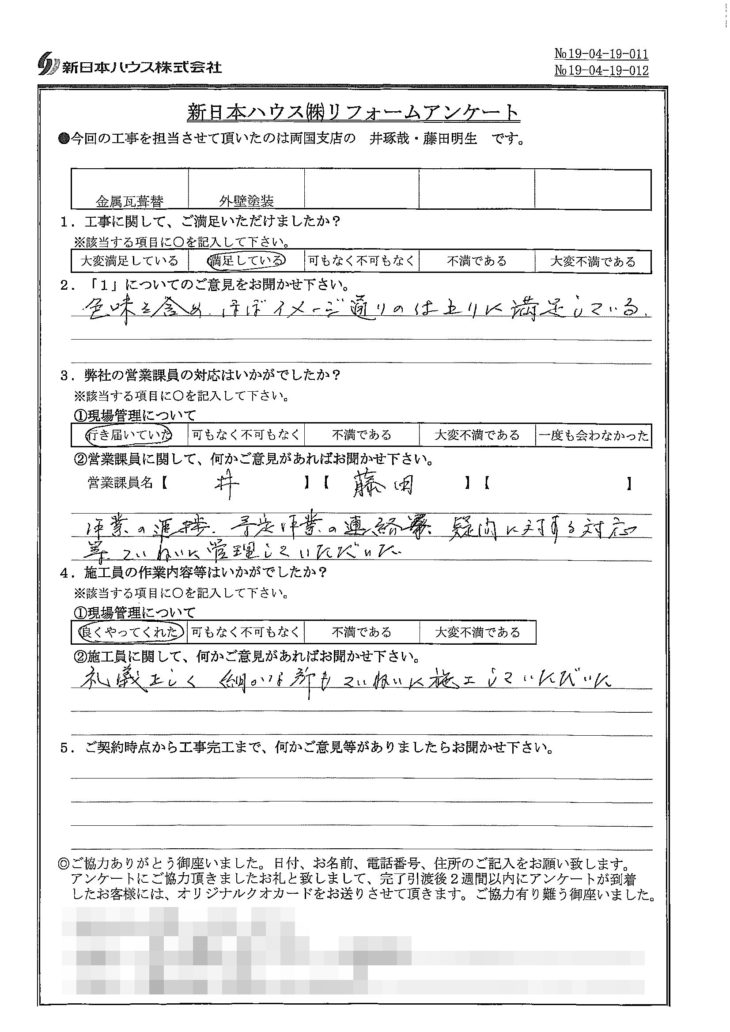 新日本ハウス株式会社
№19-04-19-011
№19-04-19-012
新日本ハウス㈱リフォームアンケート
●今回の工事を担当させて頂いたのは両国支店の 井琢哉・藤田明生 です。
金属瓦葺替 外壁塗装
1．工事に関して、ご満足いただけましたか？
※該当する項目に○を記入して下さい。
大変満足している 満足している 可もなく不可もなく 不満である 大変不満である
2．「1」についてのご意見をお聞かせ下さい。
色味を含め、ほぼイメージ通りの仕上りに満足している。
3．弊社の営業課員の対応はいかがでしたか？
※該当する項目に○を記入して下さい。
①現場管理について
行き届いていた 可もなく不可もなく 不満である 大変不満である 一度も会わなかった
②営業課員に関して、何かご意見があればお聞かせ下さい。
営業課員名【 井 】【 藤田 】【 】
作業の進捗、予定作業の連絡 疑問に対する対応
等ていねいに管理していただいた
4．施工員の作業内容等はいかがでしたか？
※該当する項目に○を記入して下さい。
①現場管理について
良くやってくれた 可もなく不可もなく 不満である 大変不満である
②施工員に関して、何かご意見があればお聞かせ下さい。
礼儀正しく 細かな所もていねいに施工していただいた
5．ご契約時点から工事完工まで、何かご意見等がありましたらお聞かせ下さい。
◎ご協力ありがとう御座いました。日付、お名前、電話番号、住所のご記入をお願い致します。
アンケートにご協力頂きましたお礼と致しまして、完了引渡後2週間以内にアンケートが到着
したお客様には、オリジナルクオカードをお送りさせて頂きます。ご協力有り難う御座いました。